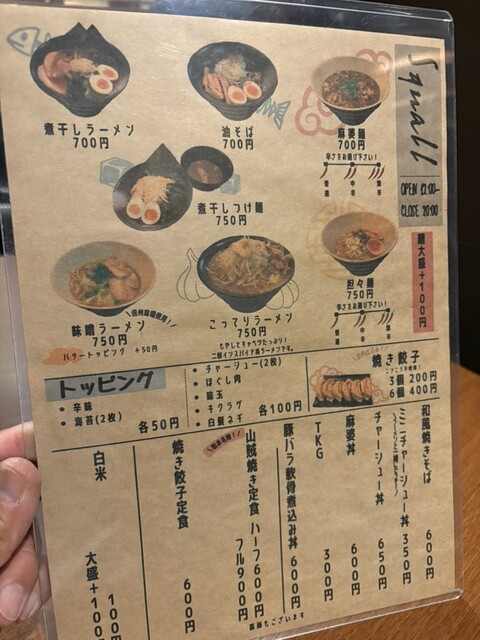 Squall
OPEN 12:00-
CLOSE 20:00
煮干しラーメン
700円
油そば
700円
麻婆麺
700円
辛さをお選び下さい!
煮干しつけ麺
750円
麺大盛+100円
味噌ラーメン
750円
バタートッピング +50円
こってりラーメン
750円
もやしとキャベツたっぷり!
二郎インスパイア系ラーメンです。
担々麺
750円
辛さをお選び下さい!
トッピング
・辛味
・海苔(2枚)
各50円
・チャーシュー(2枚)
・ほぐし肉
・味玉
・キクラゲ
・白髪ネギ
各100円
焼き餃子
3個 200円
6個 400円
和風焼きそば 600円
ミニチャーシュー丼 350円
チャーシュー丼 650円
麻婆丼 600円
TKG 300円
豚バラ軟骨煮込み丼 600円
山賊焼き定食 ハーフ600円
フル900円
焼き餃子定食 600円
白米 100円
大盛+100